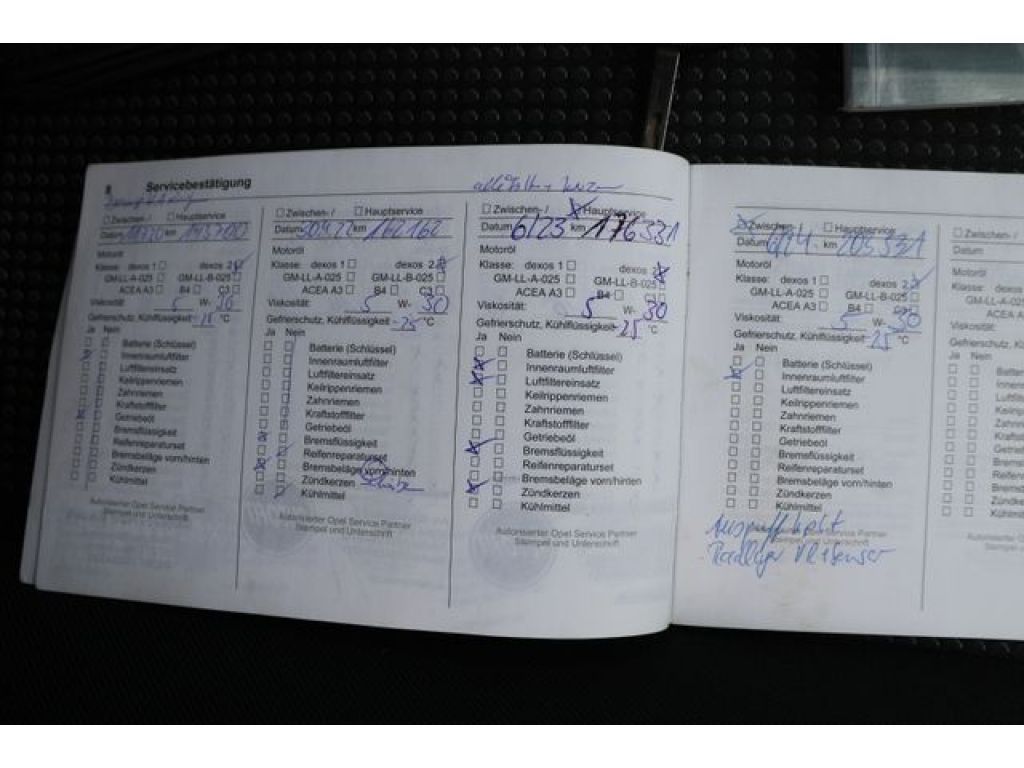 8 Servicebestätigung
☐ Zwischen- / ☐ Hauptservice
Datum km
Motoröl
Klasse: dexos 1 ☐ dexos 2
GM-LL-A-025 ☐ GM-LL-B-025 ☐
ACEA A3 ☐ B4 ☐ C3
Viskosität: 5 W- 30
Gefrierschutz, Kühlflüssigkeit °C
Ja Nein
Batterie (Schlüssel)
Innenraumluftfilter
Luftfiltereinsatz
Keilrippenriemen
Zahnriemen
Kraftstofffilter
Getriebeöl
Bremsflüssigkeit
Reifenreparaturset
Bremsbeläge vorn/hinten
Zündkerzen
Kühlmittel
Autorisierter Opel Service Partner
Stempel und Unterschrift
☐ Zwischen- / ☐ Hauptservice
Datum km 162162
Motoröl
Klasse: dexos 1 ☐ dexos 2
GM-LL-A-025 ☐ GM-LL-B-025 ☐
ACEA A3 ☐ B4 ☐ C3
Viskosität: 5 W- 30
Gefrierschutz, Kühlflüssigkeit -25 °C
Ja Nein
Batterie (Schlüssel)
Innenraumluftfilter
Luftfiltereinsatz
Keilrippenriemen
Zahnriemen
Kraftstofffilter
Getriebeöl
Bremsflüssigkeit
Reifenreparaturset
Bremsbeläge vorn/hinten
Zündkerzen
Kühlmittel
Autorisierter Opel Service Partner
Stempel und Unterschrift
☐ Zwischen- / Hauptservice
Datum 6/23 km 176331
Motoröl
Klasse: dexos 1 ☐ dexos 2
GM-LL-A-025 ☐ GM-LL-B-025
ACEA A3 ☐ B4 ☐
Viskosität: 5 W- 30
Gefrierschutz, Kühlflüssigkeit -25 °C
Ja Nein
Batterie (Schlüssel)
Innenraumluftfilter
Luftfiltereinsatz
Keilrippenriemen
Zahnriemen
Kraftstofffilter
Getriebeöl
Bremsflüssigkeit
Reifenreparaturset
Bremsbeläge vorn/hinten
Zündkerzen
Kühlmittel
Autorisierter Opel Service Partner
Stempel und Unterschrift
Zwischen- / ☐ Hauptservice
Datum km 205331
Motoröl
Klasse: dexos 1 ☐ dexos 2
GM-LL-A-025 ☐ GM-LL-B-025 ☐
ACEA A3 ☐ B4 ☐
Viskosität: 5 W- 30
Gefrierschutz, Kühlflüssigkeit 25 °C
Ja Nein
Batterie (Schlüssel)
Innenraumluftfilter
Luftfiltereinsatz
Keilrippenriemen
Zahnriemen
Kraftstofffilter
Getriebeöl
Bremsflüssigkeit
Reifenreparaturset
Bremsbeläge vorn/hinten
Zündkerzen
Kühlmittel
Auspuff kplt
Service Partner
Stempel und Unterschrift
- Radlager VR + Sensor
☐ Zwischen- /
Datum
Motoröl
Klasse: dexos 1
GM-LL-A-025
ACEA A3
Viskosität:
Gefrierschutz,
Ja Nein